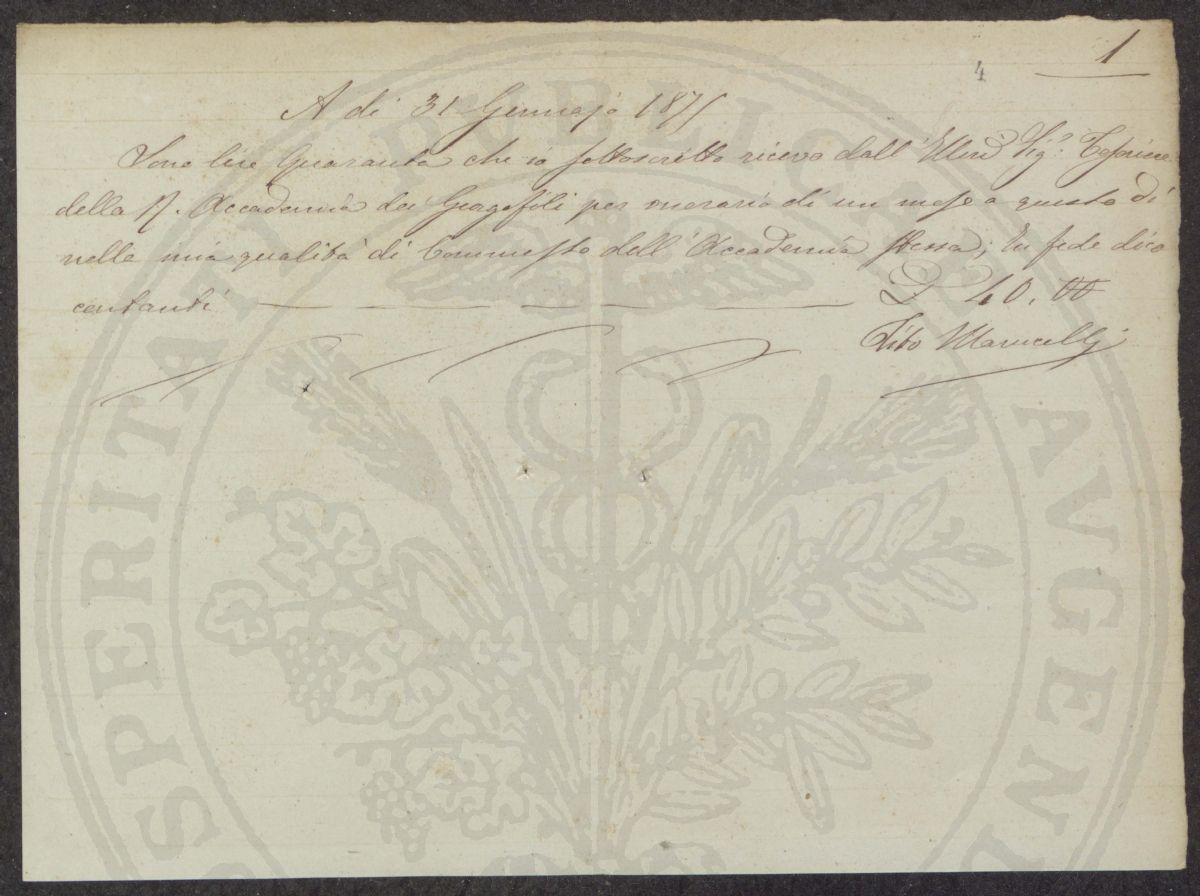 1
4
A dì 31 Gennajo 1875
Sono lire Quaranta che io sottoscritto ricevo dall' Sig.r Tesoriere
della R. Accademia dei Georgofili per onorario di un mese a questo dì
nella mia qualità di Commesso dell' Accademia stessa; In fede dico
contanti 40.00
Tito Marucelli
PROSPERITATI PUBLICAE AUGENDAE